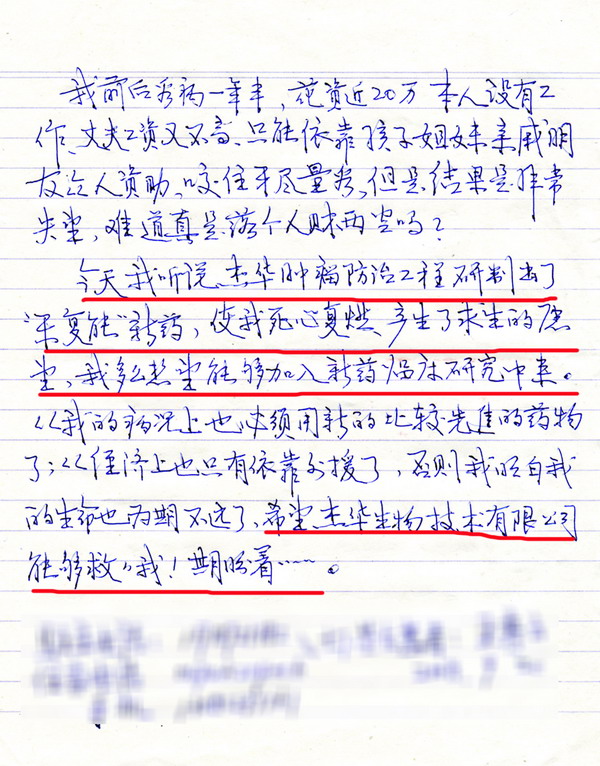 我前后看病一年半，花资近20万 本人没有工
作、丈夫工资又不高、只能依靠孩子姐妹亲戚朋
友众人资助，咬住牙尽量看，但是结果是非常
失望，难道真是落个人财两空吗？
今天我听说杰华肿瘤防治工程研制出了
“乐复能”新药，使我死心复燃产生了求生的愿
望，我多么想望能够加入新药临床研究中来。
从我的病况上也必须用新的比较先进的药物
了；从经济上也只有依靠外援了，否则我明白我
的生命也为期不远了、希望杰华生物技术有限公司
能够救救我！期盼着……。